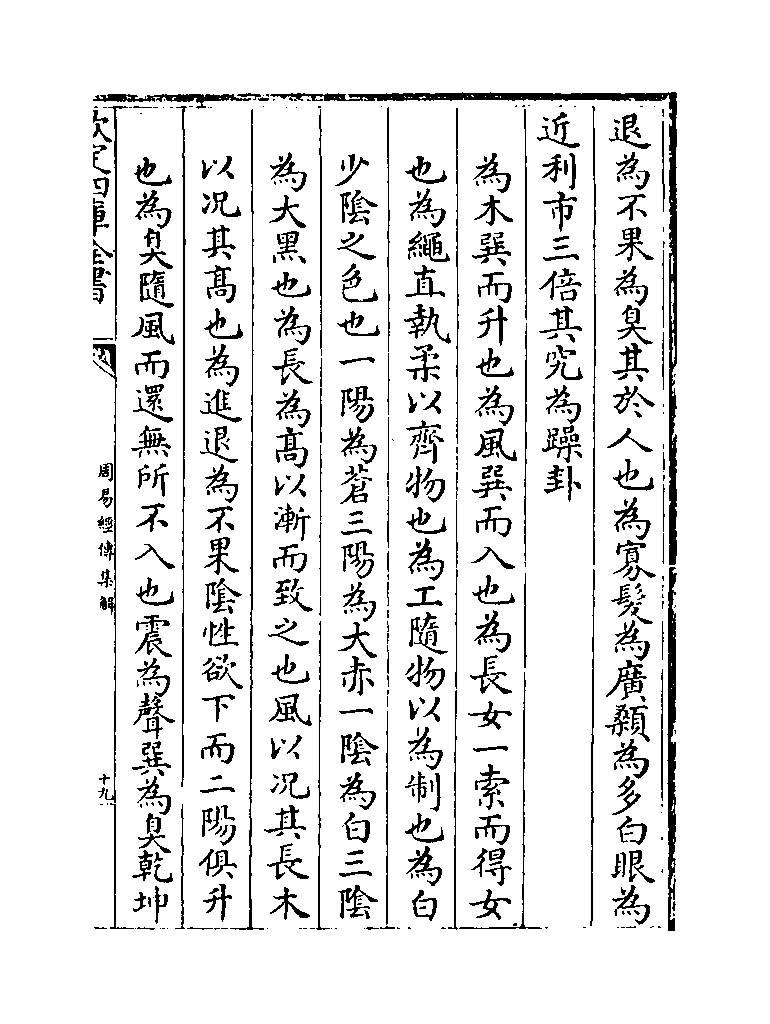 退為不果為臭其於人也為寡髮為廣顙為多白眼為
近利市三倍其究為躁卦
為木巽而升也為風巽而入也為長女一索而得女
也為繩直執柔以齊物也為工隨物以為制也為白
少陰之色也一陽為蒼三陽為大赤一陰為白三陰
為大黑也為長為高以漸而致之也風以况其長木
以况其高也為進退為不果陰性欲下而二陽俱升
也為臭隨風而還無所不入也震為聲巽為臭乾坤
欽定四庫全書
周易經傳集解
十九